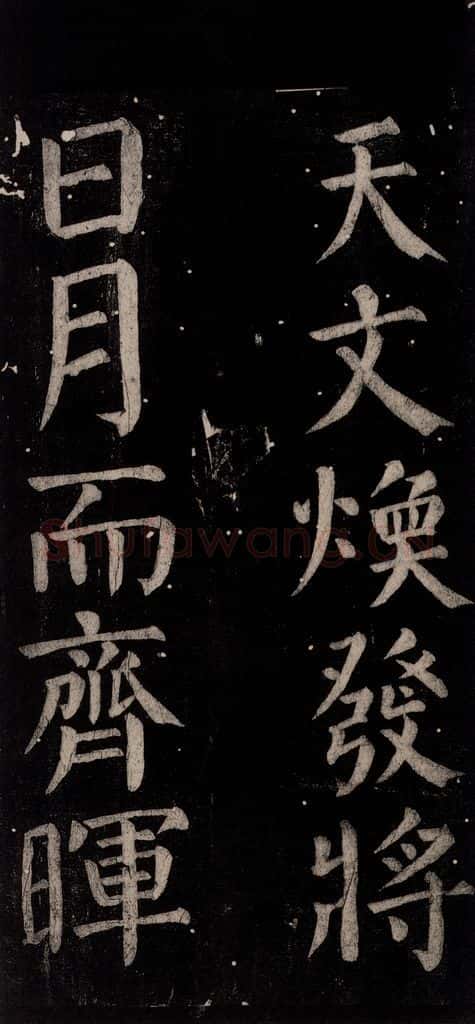 天文煥發將
日月而齊暉
Shufawang.cn